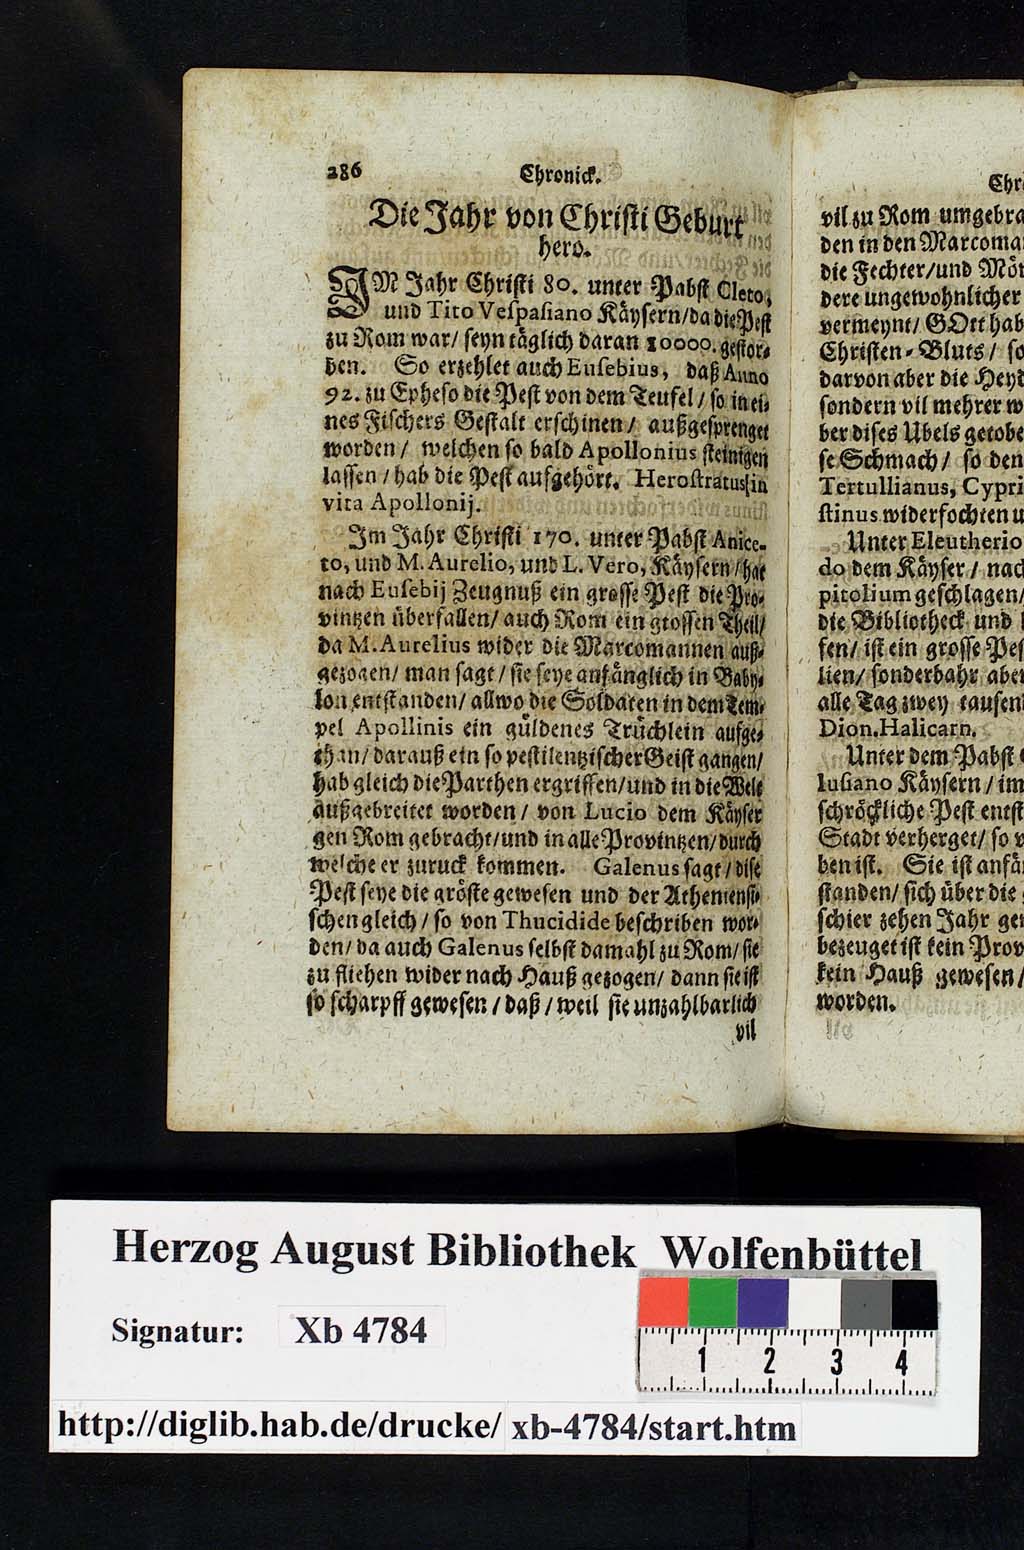 286 Chronick.
Die Jahr von Christi Geburt
hero.
IM Jahr Christi 80. unter Pabst Cleto,
und Tito Vespasiano Käysern/da die Pest
zu Rom war/ seyn täglich daran 10000. gestor-
ben. So erzehlet auch Eusebius, daß Anno
92. zu Epheso die Pest von dem Teufel/ so in ei-
nes Fischers Gestalt erschinen/ außgesprenget
worden/ welchen so bald Apollonius steinigen
lassen/hab die Pest aufgehört. Herostratus in
vita Apollonij.
Im Jahr Christi 170. unter Pabst Anice-
to, und M. Aurelio, und L. Vero, Käysern/hat
nach Eusebij Zeugnuß ein grosse Pest die Pro-
vintzen überfallen/ auch Rom ein grossen Theil/
da M. Aurelius wider die Marcomannen auß-
gezogen/ man sagt/ sie seye anfänglich in Baby-
lon entstanden/ allwo die Soldaten in dem Tem-
pel Apollinis ein güldenes Trüchlein aufge-
than/ darauß ein so pestilentzischer Geist gangen/
hab gleich die Parthen ergriffen/und in die Welt
außgebreitet worden/ von Lucio dem Käyser
gen Rom gebracht/und in alle Provintzen/durch
welche er zuruck kommen. Galenus sagt/ dise
Pest seye die gröste gewesen und der Atheniensi-
schen gleich/ so von Thucidide beschriben wor-
den/ da auch Galenus selbst damahl zu Rom/ sie
zu fliehen wider nach Hauß gezogen/ dann sie ist
so scharpff gewesen/ daß/ weil sie unzahlbarlich
vil
Chr
vil zu Rom umgebra
den in den Marcoma
die Fechter/und Mör
dere ungewohnlicher
vermeynt/ GOtt hab
Christen-Bluts/ so
darvon aber die Heyd
sondern vil mehrer w
ber dises Ubels getobe
se Schmach/ so den
Tertullianus, Cypri
stinus widerfochten u
Unter Eleutherio
do dem Käyser/ nach
pitolium geschlagen/
die Bibliotheck und
fen/ ist ein grosse Pes
lien/ sonderbahr aber
alle Tag zwey tausen
Dion. Halicarn.
Unter dem Pabst
lusiano Käysern/ im
schröckliche Pest entst
Stadt verherget/ so v
ben ist. Sie ist anfä
standen/ sich über die
schier zehen Jahr ge
bezeuget ist kein Prov
kein Hauß gewesen/
worden.
Herzog August Bibliothek Wolfenbüttel
Signatur: Xb 4784
1 2 3 4
http://diglib.hab.de/drucke/ xb-4784/start.htm